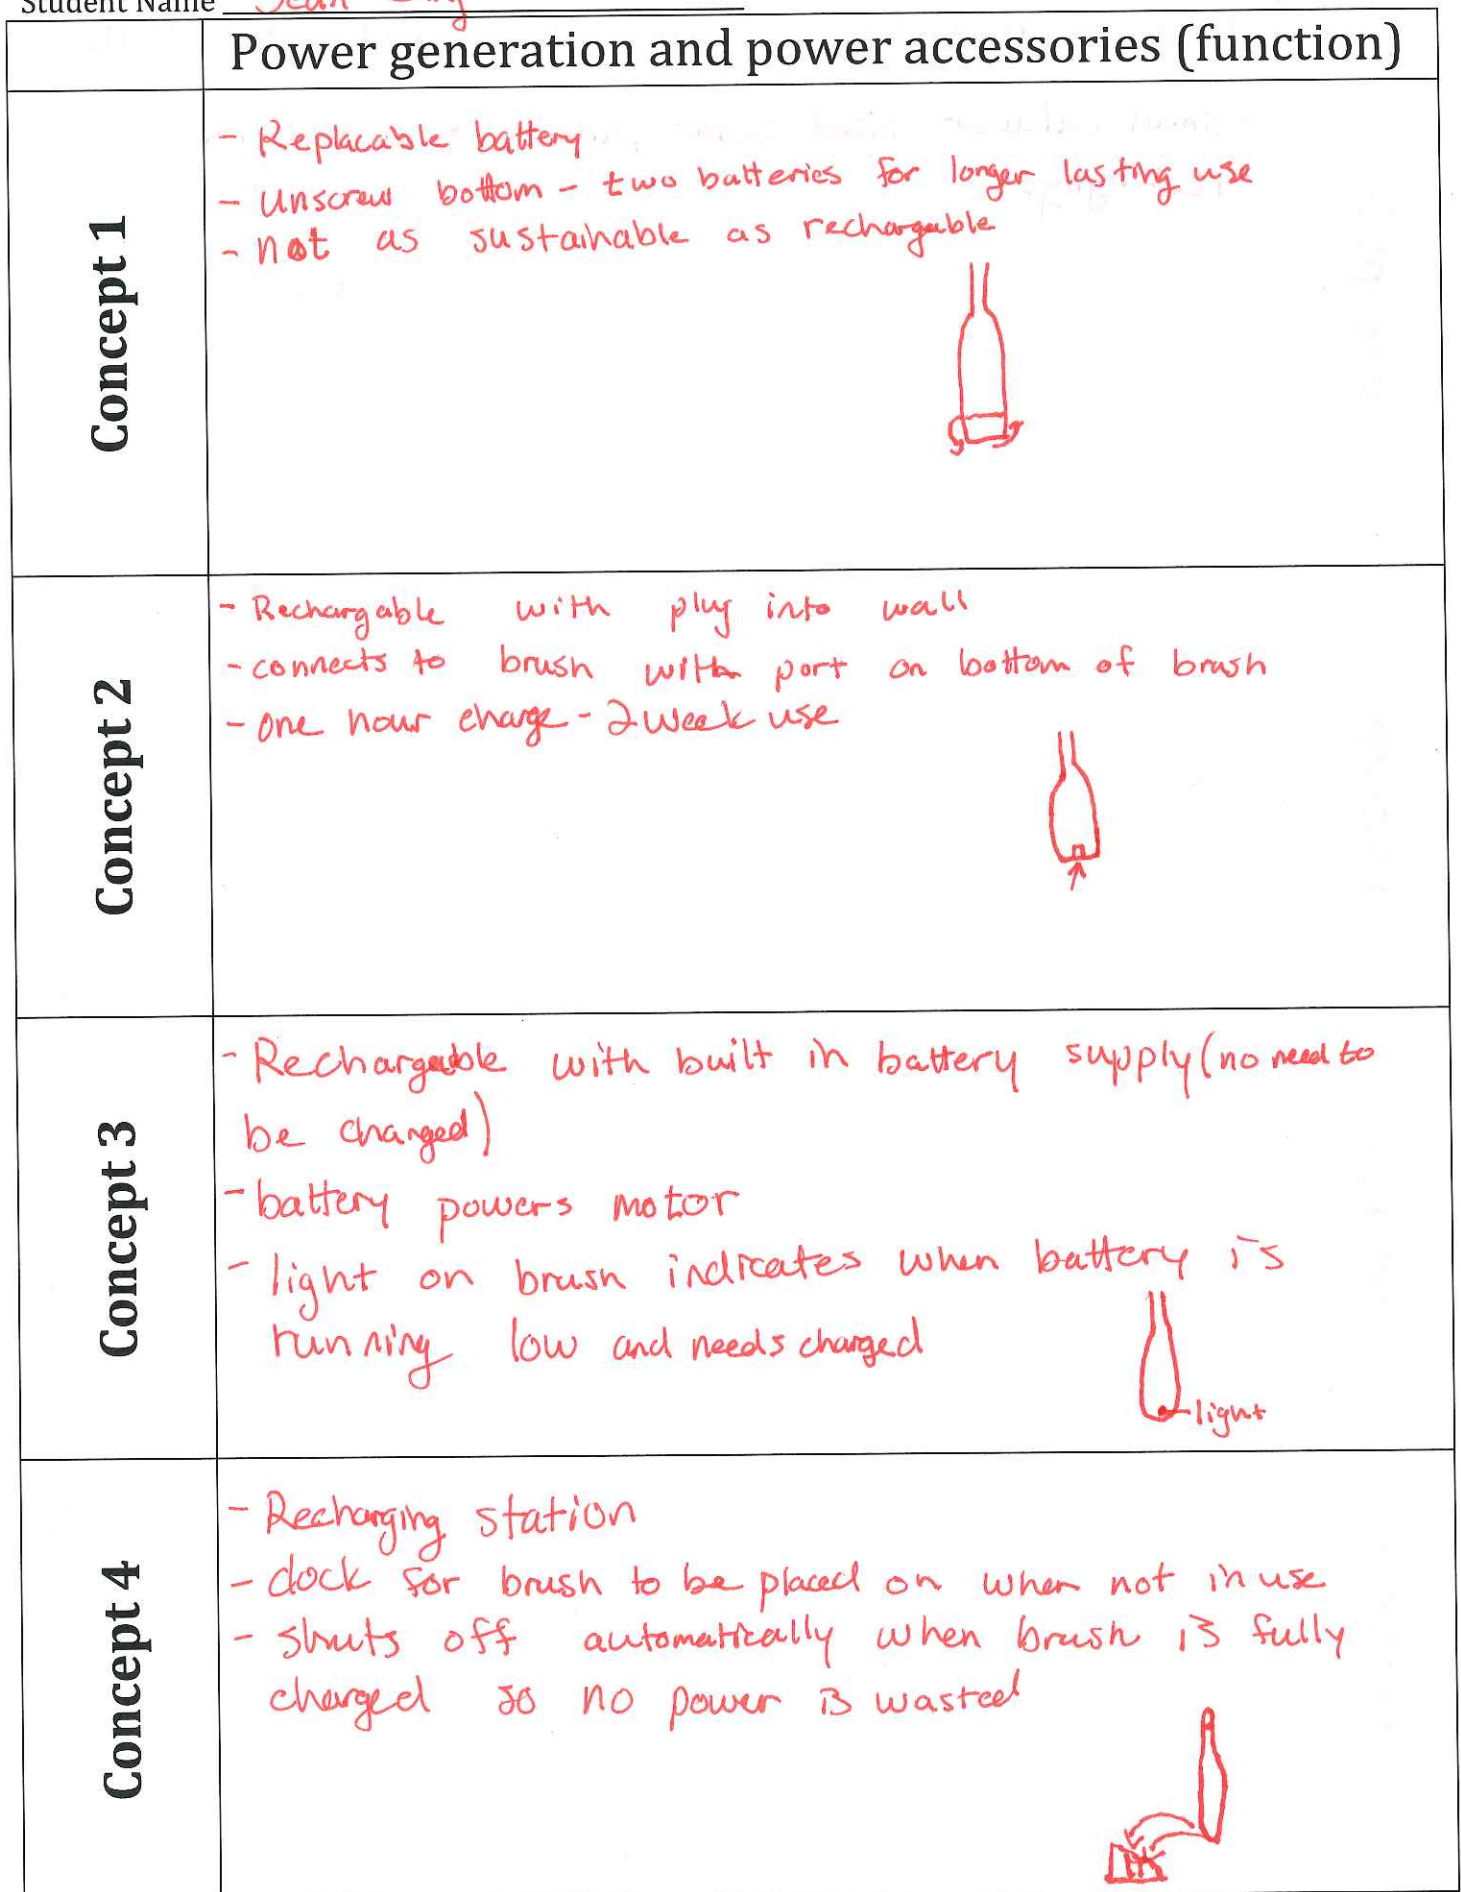 Student Name
Power generation and power accessories (function)
Concept 1
- Replacable battery
- Unscrew bottom - two batteries for longer lasting use
- not as sustainable as rechargable
Concept 2
- Rechargable with plug into wall
- connects to brush with port on bottom of brush
- one hour charge - 2 week use
Concept 3
- Rechargable with built in battery supply (no need to
be changed)
- battery powers motor
- light on brush indicates when battery is
running low and needs charged
light
Concept 4
- Recharging station
- dock for brush to be placed on when not in use
- shuts off automatically when brush is fully
charged so no power is wasted